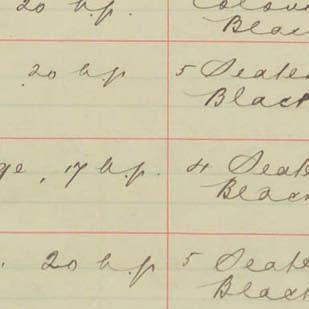 20 h.p.
Blac
20 h.p 5 Seate
Black
ge, 17 h.p. 4 Seat
Blac
20 h.p 5 Seate
Black